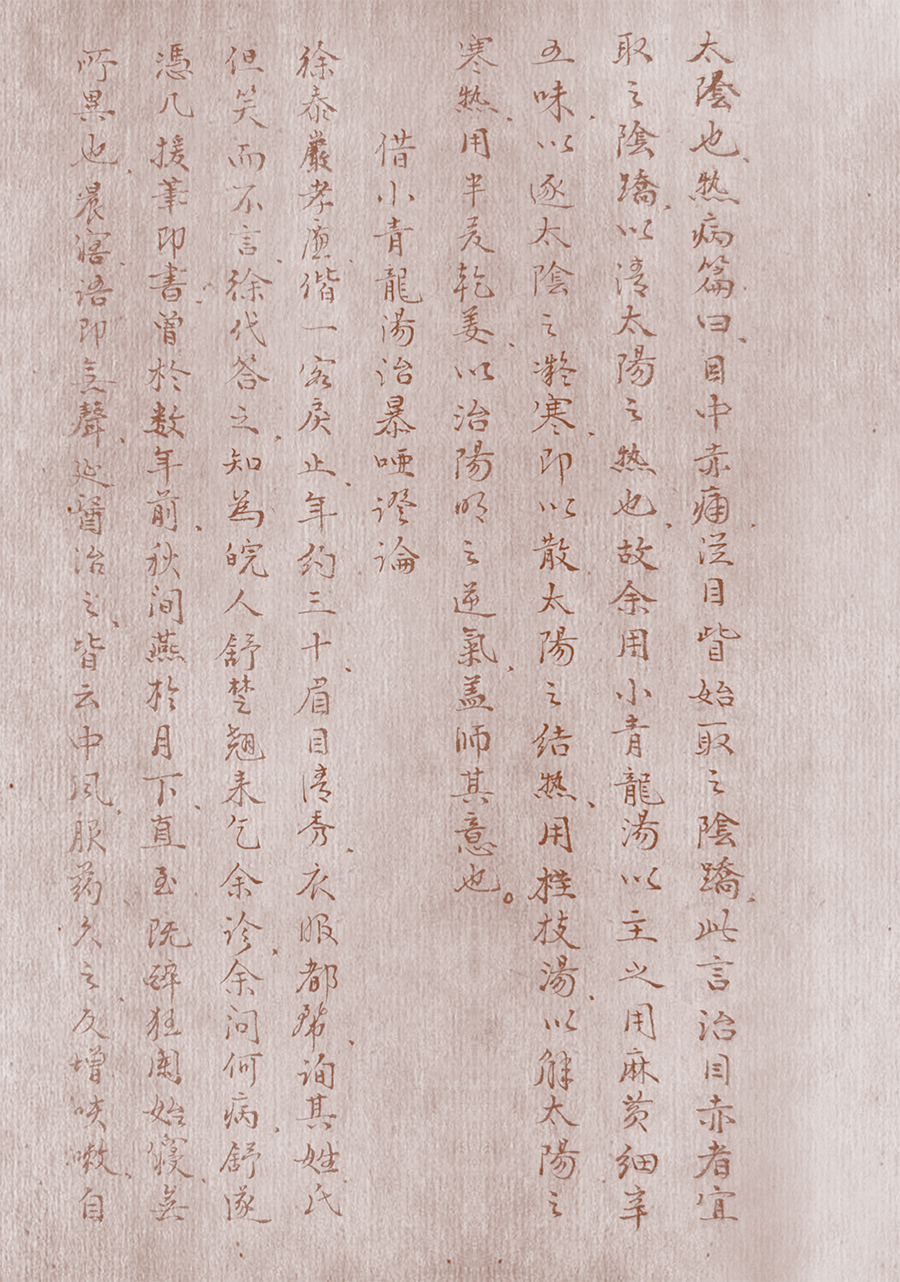 太陰也、热病篇曰、目中赤痛、從目眥始取之陰蹻、此言治目赤者宜
取之陰蹻、以清太陽之热也、故余用小青龍湯以主之用麻黄细辛
五味、以逐太陰之凝寒、即以散太陽之结热、用桂技湯、以觧太陽之
寒热、用半夏乾姜、以治陽明之逆氣、盖師其意也。
借小青龍湯治暴哑證論
徐泰巖孝廉偕一客戾止、年约三十、眉目清秀、衣服都麗、询其姓氏
但笑而不言、徐代答之、知為皖人舒楚翘来乞余诊、余问何病、舒遂
憑几援筆即書、曾於数年前、秋间燕於月下、直至既醉狂圉始寢、無
所異也、晨寤、语即無聲、延醫治之、皆云中風、服药久之、反增咳嗽、自